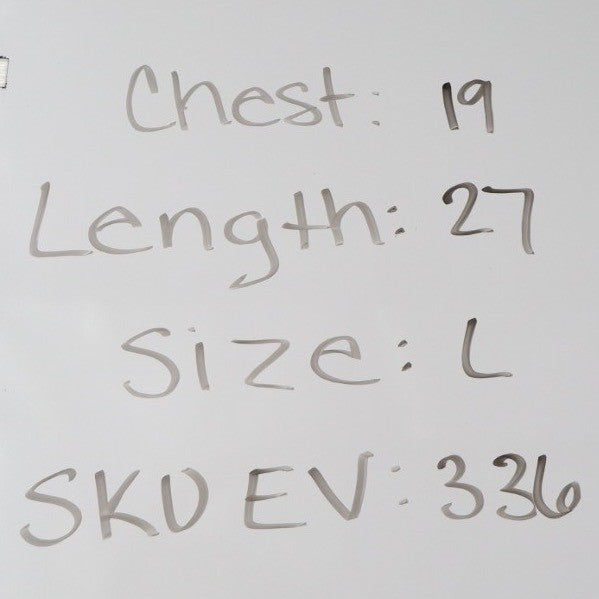 Chest: 19
Length: 27
Size: L
SKU EV: 336